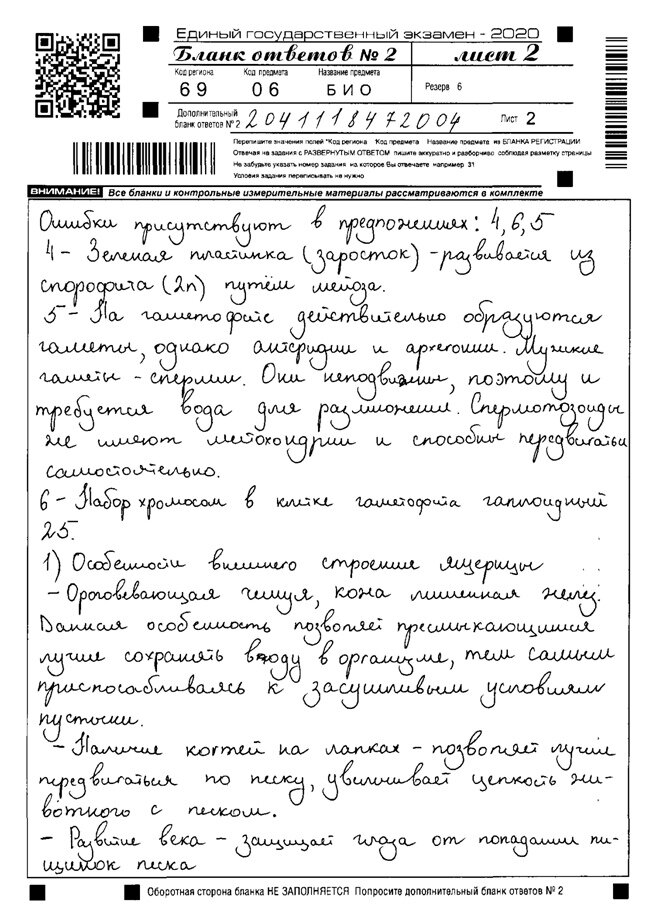 Единый государственный экзамен - 2020
Бланк ответов № 2 лист 2
Код региона Код предмета Название предмета
69 06 БИО Резерв 6
Дополнительный бланк ответов № 2 2041118472004 Лист 2
Перепишите значения полей "Код региона "Код предмета "Название предмета из БЛАНКА РЕГИСТРАЦИИ
Отвечая на задания с РАЗВЕРНУТЫМ ОТВЕТОМ пишите аккуратно и разборчиво соблюдая разметку страницы
Не забудьте указать номер задания на которое Вы отвечаете например 31
Условия задания переписывать не нужно
ВНИМАНИЕ! Все бланки и контрольные измерительные материалы рассматриваются в комплекте
Ошибки присутствуют в предложениях: 4, 6, 5
4 - Зеленая пластинка (заросток) - развивается из
спорофита (2n) путём мейоза.
5 - На гаметофите действительно образуются
гаметы, однако антеридии и архегонии. Мужские
гаметы - спермии. Они неподвижны, поэтому и
требуется вода для размножения. Спермотозоиды
же имеют метохондрии и способны передвигаться
самостоятельно.
6 - Набор хромосом в клетке гаметофита гаплоидный
25.
1) Особенности внешнего строение ящерицы
- Ороговевающая чешуя, кожа лишенная желез.
Данная особенность позволяет пресмыкающимся
лучше сохранять воду в организме, тем самым
приспосабливаясь к засушливым условиям
пустыни.
- Наличие когтей на лапках - позволяет лучше
передвигаться по песку, увеличивает цепкость жи-
вотного с песком.
- Развитие века - защищает глаза от попадании пи-
щинок песка
Оборотная сторона бланка НЕ ЗАПОЛНЯЕТСЯ Попросите дополнительный бланк ответов № 2